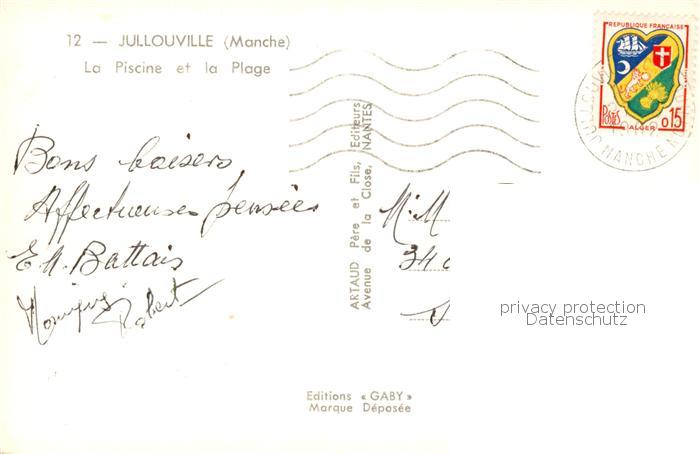 12 — JULLOUVILLE (Manche)
La Piscine et la Plage
REPUBLIQUE FRANÇAISE
POSTES 0,15
ALGER
MANCHE
Bons baisers
Affectueuses pensées
E M. Battais
Robert
ARTAUD Père et Fils, Editeurs
Avenue de la Close, NANTES
M. M
34
privacy protection
Datenschutz
Editions « GABY »
Marque Déposée